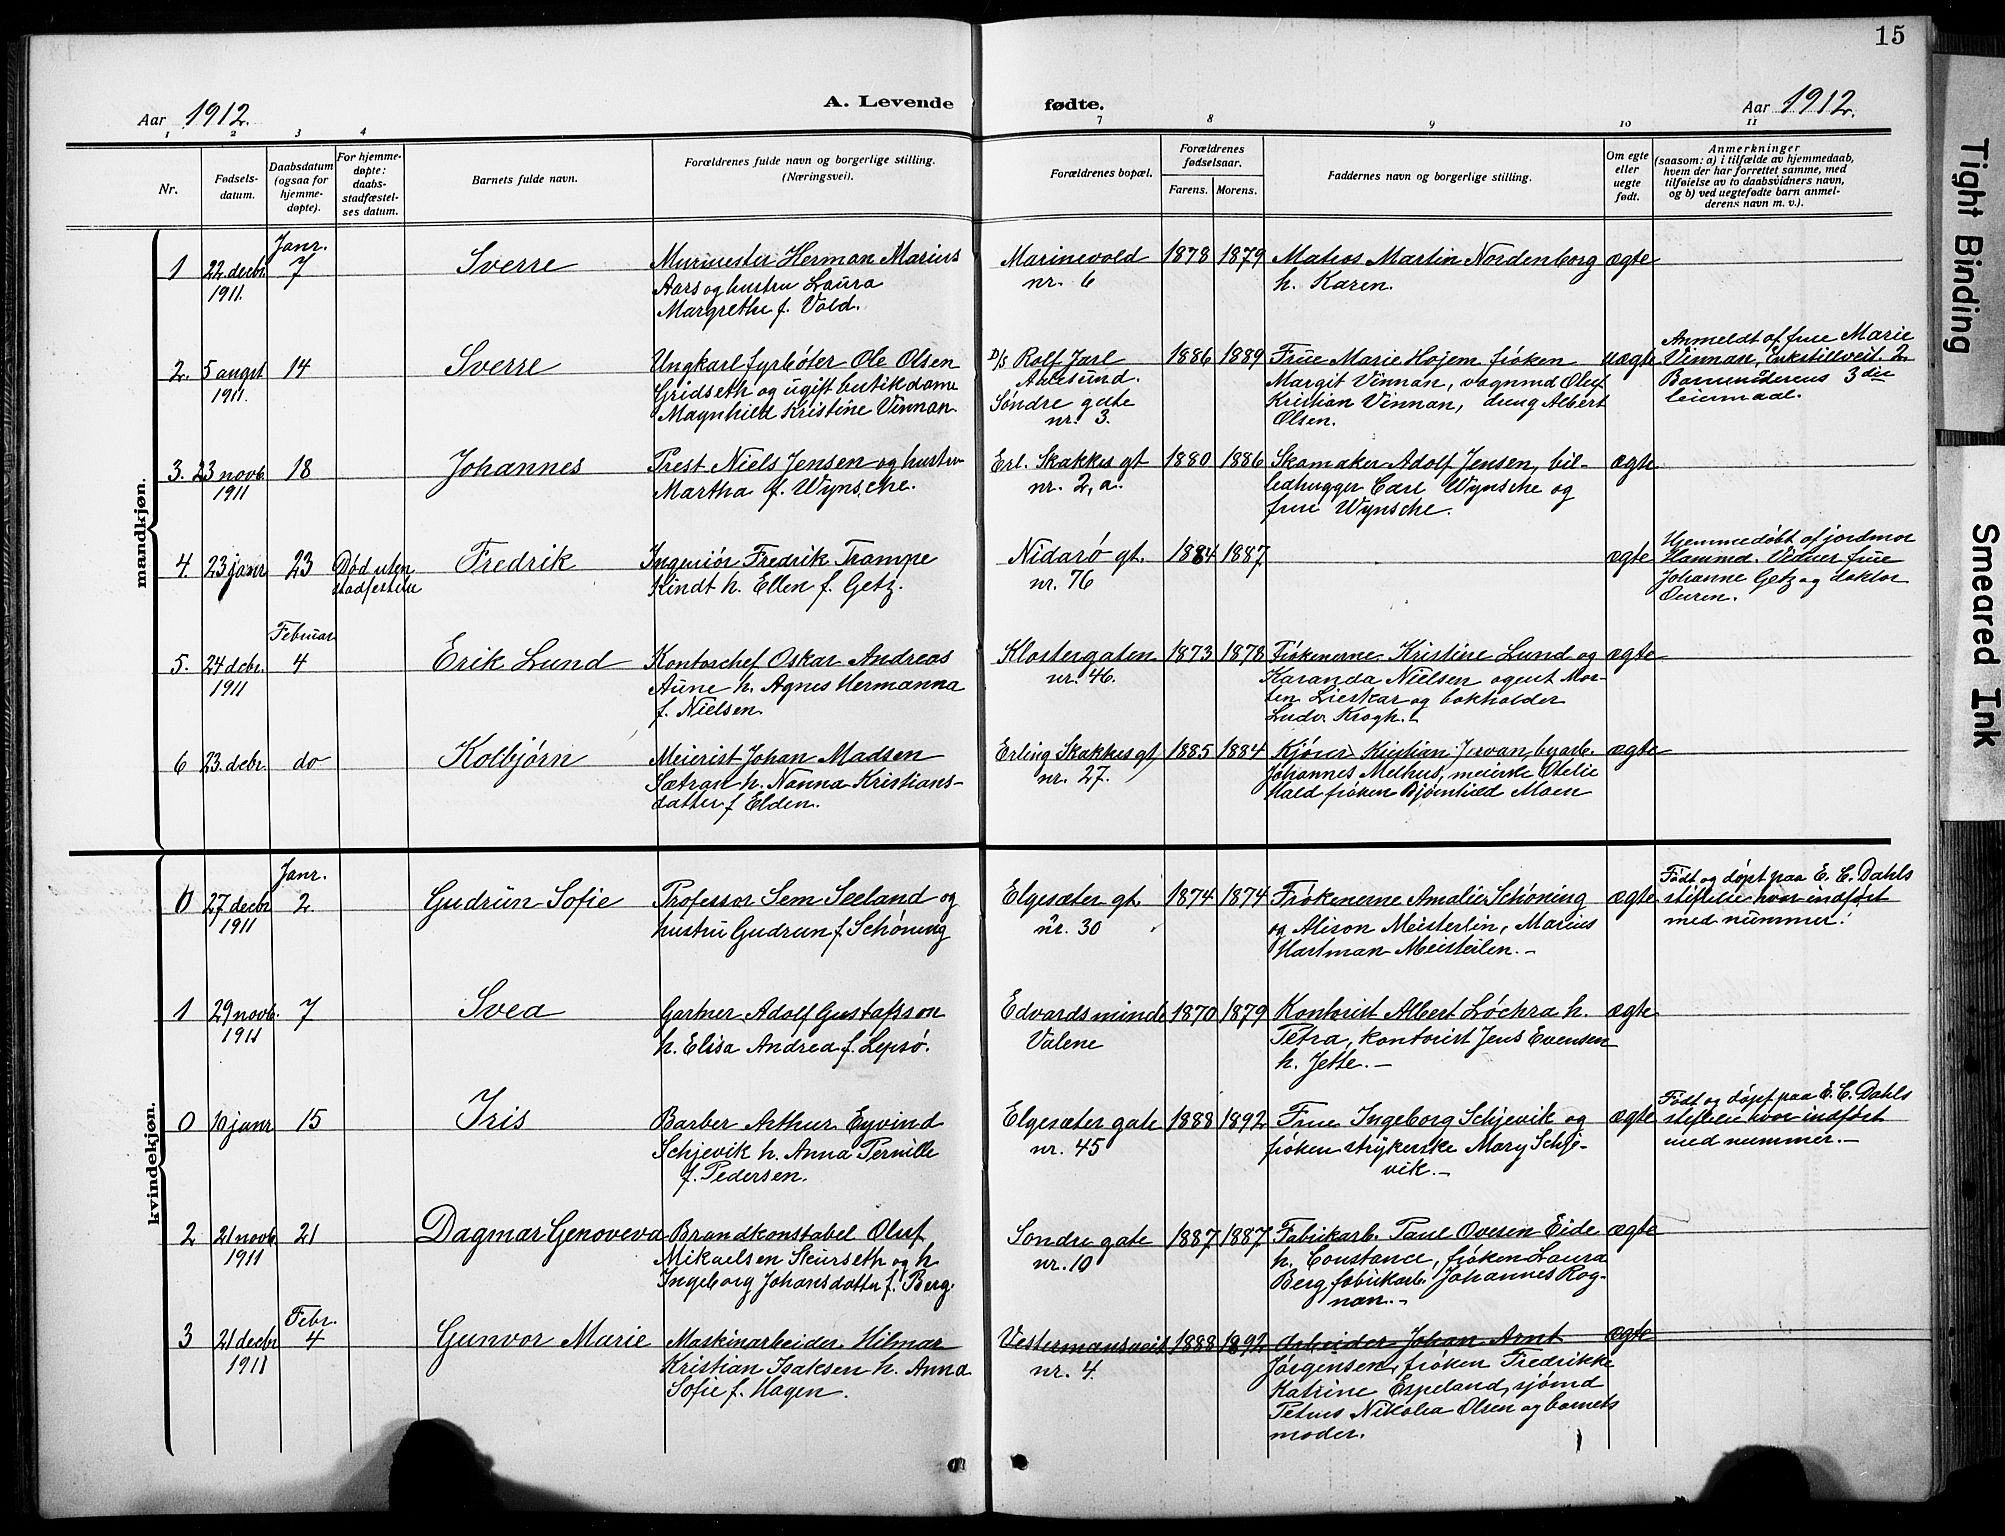 15
Aar 1912.
A. Levende fødte.
Aar 1912.
1 2 3 4 7 8 9 10 11
Nr.
Fødsels-
datum.
Daabsdatum
(ogsaa for
hjemme-
døpte).
For hjemme-
døpte:
daabs-
stadfæstel-
ses datum.
Barnets fulde navn.
Forældrenes fulde navn og borgerlige stilling.
(Næringsvei).
Forældrenes bopæl.
Forældrenes
fødselsaar.
Farens. Morens.
Faddernes navn og borgerlige stilling.
Om egte
eller
uegte
født.
Anmerkninger
(saasom: a) i tilfælde av hjemmedaab,
hvem der har forrettet samme, med
tilføielse av to daabsvidners navn,
og b) ved uegtefødte barn anmel-
derens navn m. v.).
mandkjøn.
Janr.
1 22 decbr 7 Sverre
1911.
Murmester Herman Marius
Aars og hustru Laura
Margrethe f. Vold.
Marinevold
nr. 6
1878 1879
Matros Martin Nordenborg
h. Karen.
ægte
2. 5 augst 14 Sverre
1911.
Ungkarl fyrbøter Ole Olsen
Gridseth og ugift butikdame
Magnhild Kristine Vinnan.
D/S Rolf Jarl
Aalesund.
Søndre gate
nr. 3.
1886 1889
Frue Marie Hojem frøken
Margit Vinnan, vognmd Oluf
Kristian Vinnan, dreng Albert
Olsen.
uægte
Anmeldt af frue Marie
Vinnan, Enkstillveit 2
Barnemoderens 3die
leiermaal.
3. 23 novb. 18 Johannes
1911
Prest Niels Jensen og hustru
Martha f. Wynsche.
Erl. Skakkes gt
nr. 2, a.
1880 1886
Skomaker Adolf Jensen, bil-
ledhugger Carl Wynsche og
frue Wynsche.
ægte
4. 23 janr 23 Død uten
stadfestelse
Fredrik
Ingeniør Fredrik Trampe
Kindt h. Ellen f. Getz.
Nidarø gt.
nr. 76
1884 1887
ægte
Hjemmedøbt af jordmor
Hammed. Vidner frue
Johanne Getz og doktor
Februar
5. 24 dcbr. 4 Erik Lund
1911
Kontorchef Oskar Andreas
Aune h. Agnes Hermanna
f. Nielsen.
Klostergaten
nr. 46.
1873 1878
Frøkenerne Kristine Lund og
Karanda Nielsen agent Mor-
ten Lierkar og bokholder
Ludv. Krogh.
ægte
6 23. dcbr. do Kolbjørn
Meierist Johan Madsen
Sætran h. Nanna Kristians-
datter f Elden.
Erling Skakkes gt
nr. 27.
1885 1884
Kjører Kristian Jervan, byarb.
Johannes Melhus, meierske Otelie
Hald frøken Bjørnhild Moen
ægte
kvindekjøn.
Janr.
0 27 decbr 2. Gudrun Sofie
1911
Professor Sem Sæland og
hustru Gudrun f. Schöning
Elgesæter gt.
nr. 30
1874 1874
Frøkenerne Amalie Schöning
og Alison Meisterlin, Marius
Hartman Meisterlin.-
ægte
Født og døpt paa E. C. Dahls
stiftelse hvor indført
med nummer.
1 29 novb. 7 Svea
1911
Gartner Adolf Gustafsson
h. Elisa Andrea f. Lepsø.
Edvardsminde
Valene
1870 1879
Kontorist Albert Løchra h.
Petra, kontorist Jens Evensen
h. Jette.-
ægte
0 10 janr 15 Iris
Barber Arthur Eyvind
Schjevik h. Anna Pernille
f. Pedersen.
Elgesæter gate
nr. 45
1888 1892
Frue Ingeborg Schjevik og
frøken strykerske Mary Schje-
vik.-
ægte
Født og døpt paa E. C. Dahls
stiftelse hvor indført
med nummer.-
2 21 novb. 21 Dagmar Genoveva
1911
Brandkonstabel Oluf
Mikaelsen Skurseth og h.
Ingeborg Johansdatter f. Berg.
Søndre gate
nr. 10
1887 1887
Fabrikarb. Paul Ovesen Eide
h. Constance, frøken Laura
Berg fabrikarb. Johannes Rog-
nan.-
ægte
Febr.
3 21 decbr 4 Gunvor Marie
1911
Maskinarbeider Hilmar
Kristian Isaksen h. Anna
Sofie f. Hagen.
Vestermansveit
nr. 4.
1888 1892
Arbeider Johan Arnt
Jørgensen, frøken Fredrikke
Katrine Espeland, sjømd
Petrus Nikolai Olsen og barnets
moder.
ægte
Tight Binding
Smeared Ink